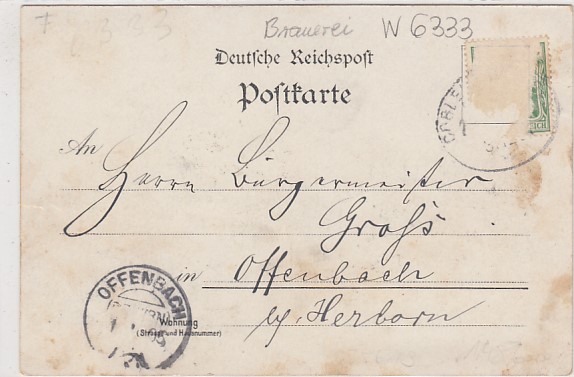 Brauerei W 6333
Deutsche Reichspost
Postkarte
An
Herrn Bürgermeister
Groß
in Offenbach
by Herborn
OFFENBACH
Wohnung
(Strasse und Hausnummer)